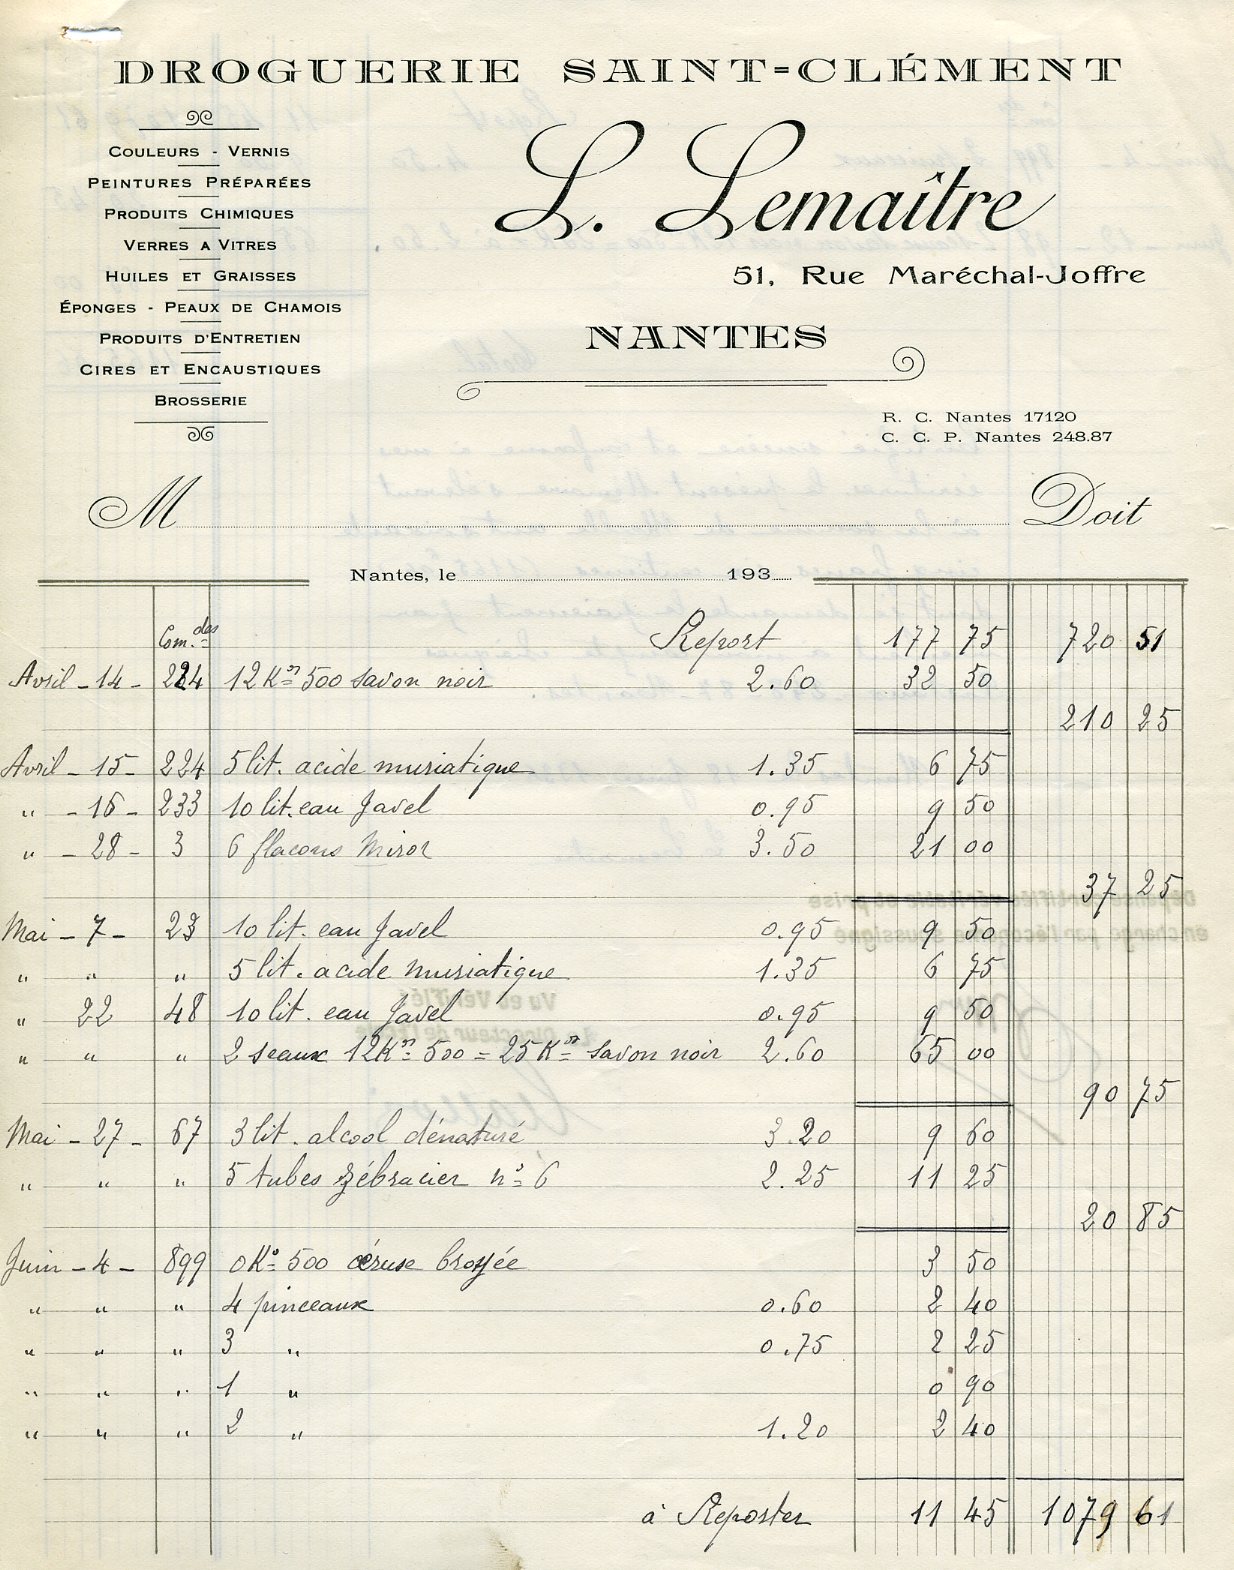 DROGUERIE SAINT-CLÉMENT
COULEURS - VERNIS
PEINTURES PRÉPARÉES
PRODUITS CHIMIQUES
VERRES A VITRES
HUILES ET GRAISSES
ÉPONGES - PEAUX DE CHAMOIS
PRODUITS D'ENTRETIEN
CIRES ET ENCAUSTIQUES
BROSSERIE
L. Lemaître
51, Rue Maréchal-Joffre
NANTES
R. C. Nantes 17120
C. C. P. Nantes 248.87
M Doit
Nantes, le 193
Com.des Report 177 75 720 51
Avril - 14 - 224 12 Kos 500 savon noir 2.60 32 50
210 25
Avril - 15 - 224 5 lit. acide muriatique 1.35 6 75
" - 16 - 233 10 lit. eau Javel 0.95 9 50
" - 28 - 3 6 flacons Miror 3.50 21 00
37 25
Mai - 7 - 23 10 lit. eau Javel 0.95 9 50
" " " 5 lit. acide muriatique 1.35 6 75
" 22 48 10 lit. eau Javel 0.95 9 50
" " " 2 seaux 12 Kos 500 = 25 Kos savon noir 2.60 65 00
90 75
Mai - 27 - 67 3 lit. alcool dénaturé 3.20 9 60
" " " 5 tubes zébracier no 6 2.25 11 25
20 85
Juin - 4 - 899 0 Ko 500 céruse broyée 3 50
" " " 4 pinceaux 0.60 2 40
" " " 3 " 0.75 2 25
" " " 1 " 0 90
" " " 2 " 1.20 2 40
à Reporter 11 45 1079 61